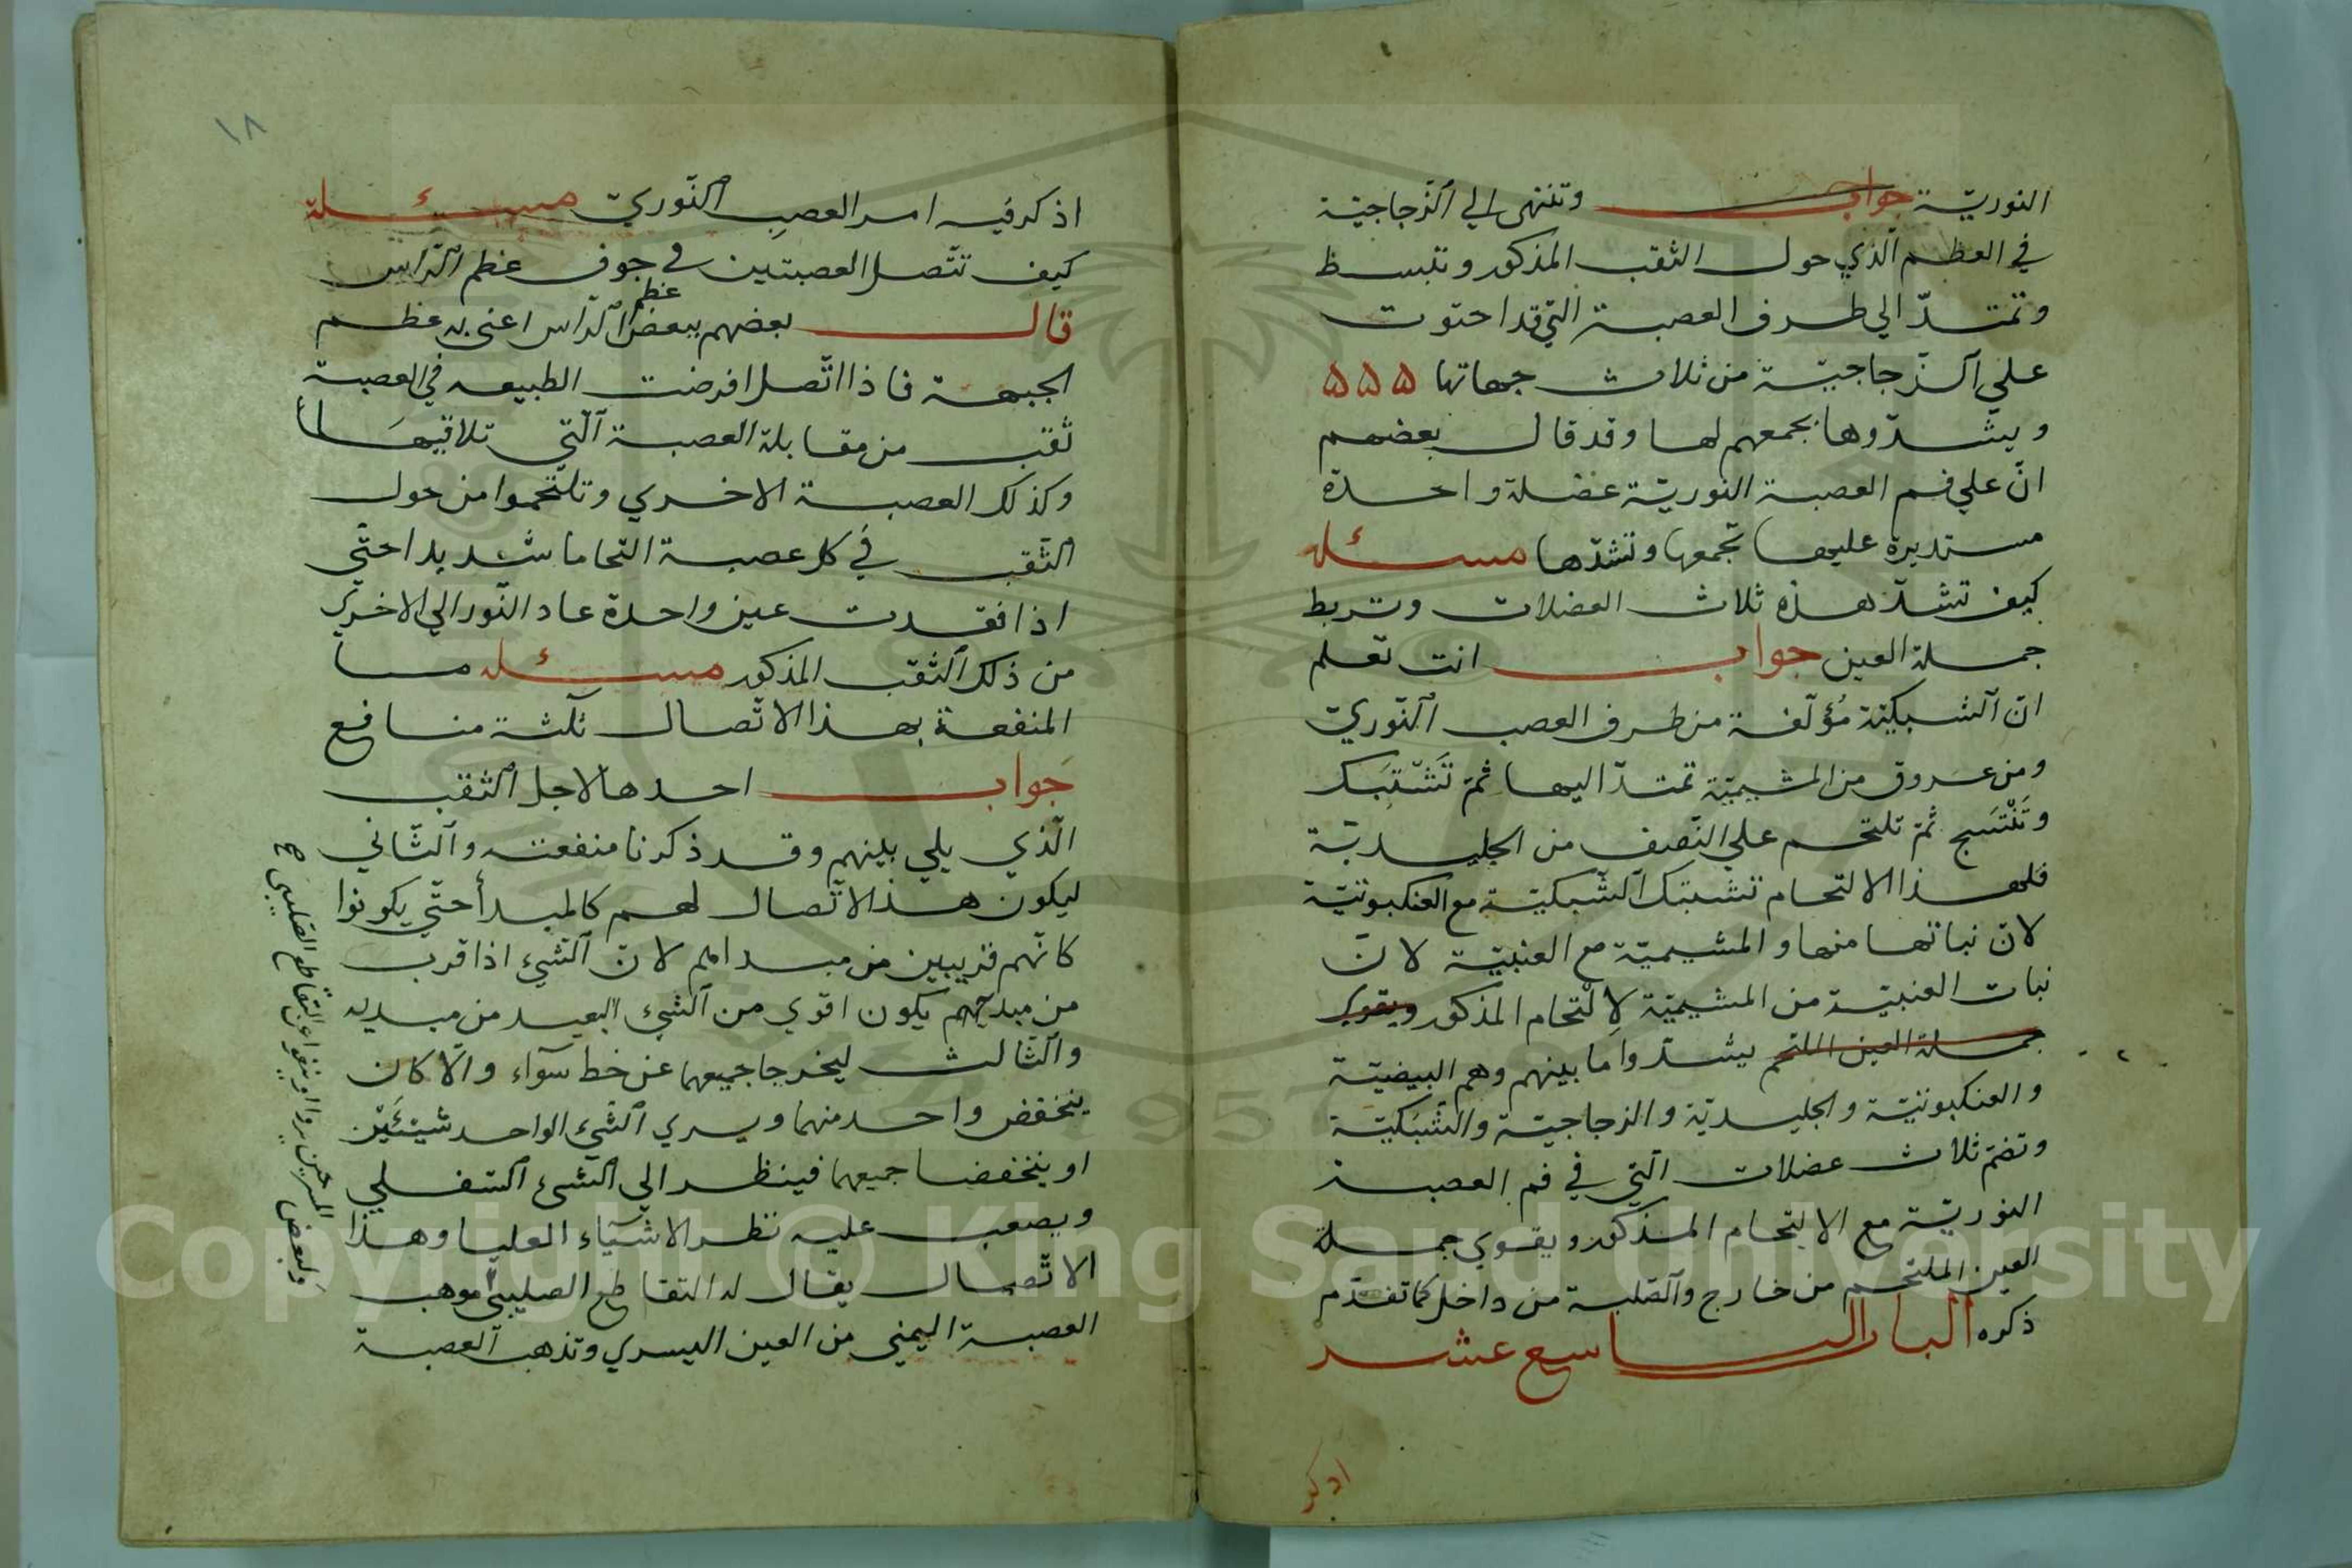 النوريّة جواب وتنتهى الي الزّجاجيّة
في العظم الّذي حول الثقب المذكور وتنبسط
وتمتدّ الي طرف العصبة التي قد احتوت
علي الزّجاجيّة من ثلاث جهاتها ۵۵۵
ويشدّوها بجمعهم لها وقد قال بعضهم
انّ علي فم العصبة النوريّة عضلة واحدة
مستديرة عليها تجمعها وتشدّها مسئله
كيف تشدّ هذه ثلاث العضلات وتربط
جملة العين جواب انت تعلم
انّ الشبكيّة مؤلّفة من طرف العصب النّوريّ
ومن عروق من المشيميّة تمتدّ اليها ثمّ تَشْتَبَك
وتَنْتَسَج ثمّ تلتحم علي النّصف من الجليديّة
فلهذا الالتحام تشتبك الشّبكيّة مع العنكبوتيّة
لانّ نباتها منها والمشيميّة مع العنبيّة لانّ
نبات العنبيّة من المشيميّة لإلتحام المذكور ويقوي
جملة العين الملتحم يشدّوا ما بينهم وهم البيضيّة
والعنكبوتيّة والجليديّة والزجاجيّة والشّبكيّة
وتضمّ ثلاث عضلات الّتي في فم العصبة
النوريّة مع الالتحام المذكور ويقوي جملة
العين الملتحم من خارج والصّلبة من داخل كما تقدّم
ذكره الباب التاسع عشر
اذكر
١٨
اذكر فيه امر العصب النّوريّ مسئلة
كيف تتّصل العصبتين في جوف عظم الرّاس
قال بعضهم ببعض عظم الرّاس اعنى به عظم
الجبهة فاذا اتّصلا فرضت الطبيعه في العصبة
ثقب من مقابلة العصبة الّتي تلاقيها
وكذلك العصبة الاخري وتلتحموا من حول
الثّقب في كل عصبة التحاما شديدا حتّي
اذا فقدت عين واحدة عاد النّور الي الاخري
من ذلك الثّقب المذكور مسئله ما
المنفعة بهذا الاتّصال ثلثة منافع
جواب احدها لاجل الثقب
الّذي يلي بينهم وقد ذكرنا منفعته والثّاني
ليكون هذا الاتّصال لهم كالمبدأ حتّي يكونوا
كانّهم قريبين من مبداهم لانّ الشّيء اذا قرب
من مبديهم يكون اقوي من الشّيء البعيد من مبديه
والثّالث ليخرجا جميعهما عن خط سوآء والّا كان
ينخفض واحد منهما ويسري الشّيء الواحد شيئَيْن
او ينخفضا جميعهما فينظر الي الشّيء السّفلي
ويصعب عليه نظر الاشيآء العليا وهذا
الاتّصال يقال له التقاطع الصليبي موهب
العصبة اليمني من العين اليسري وتذهب العصبة
ولبعض عن التقاطع الصليبي صح